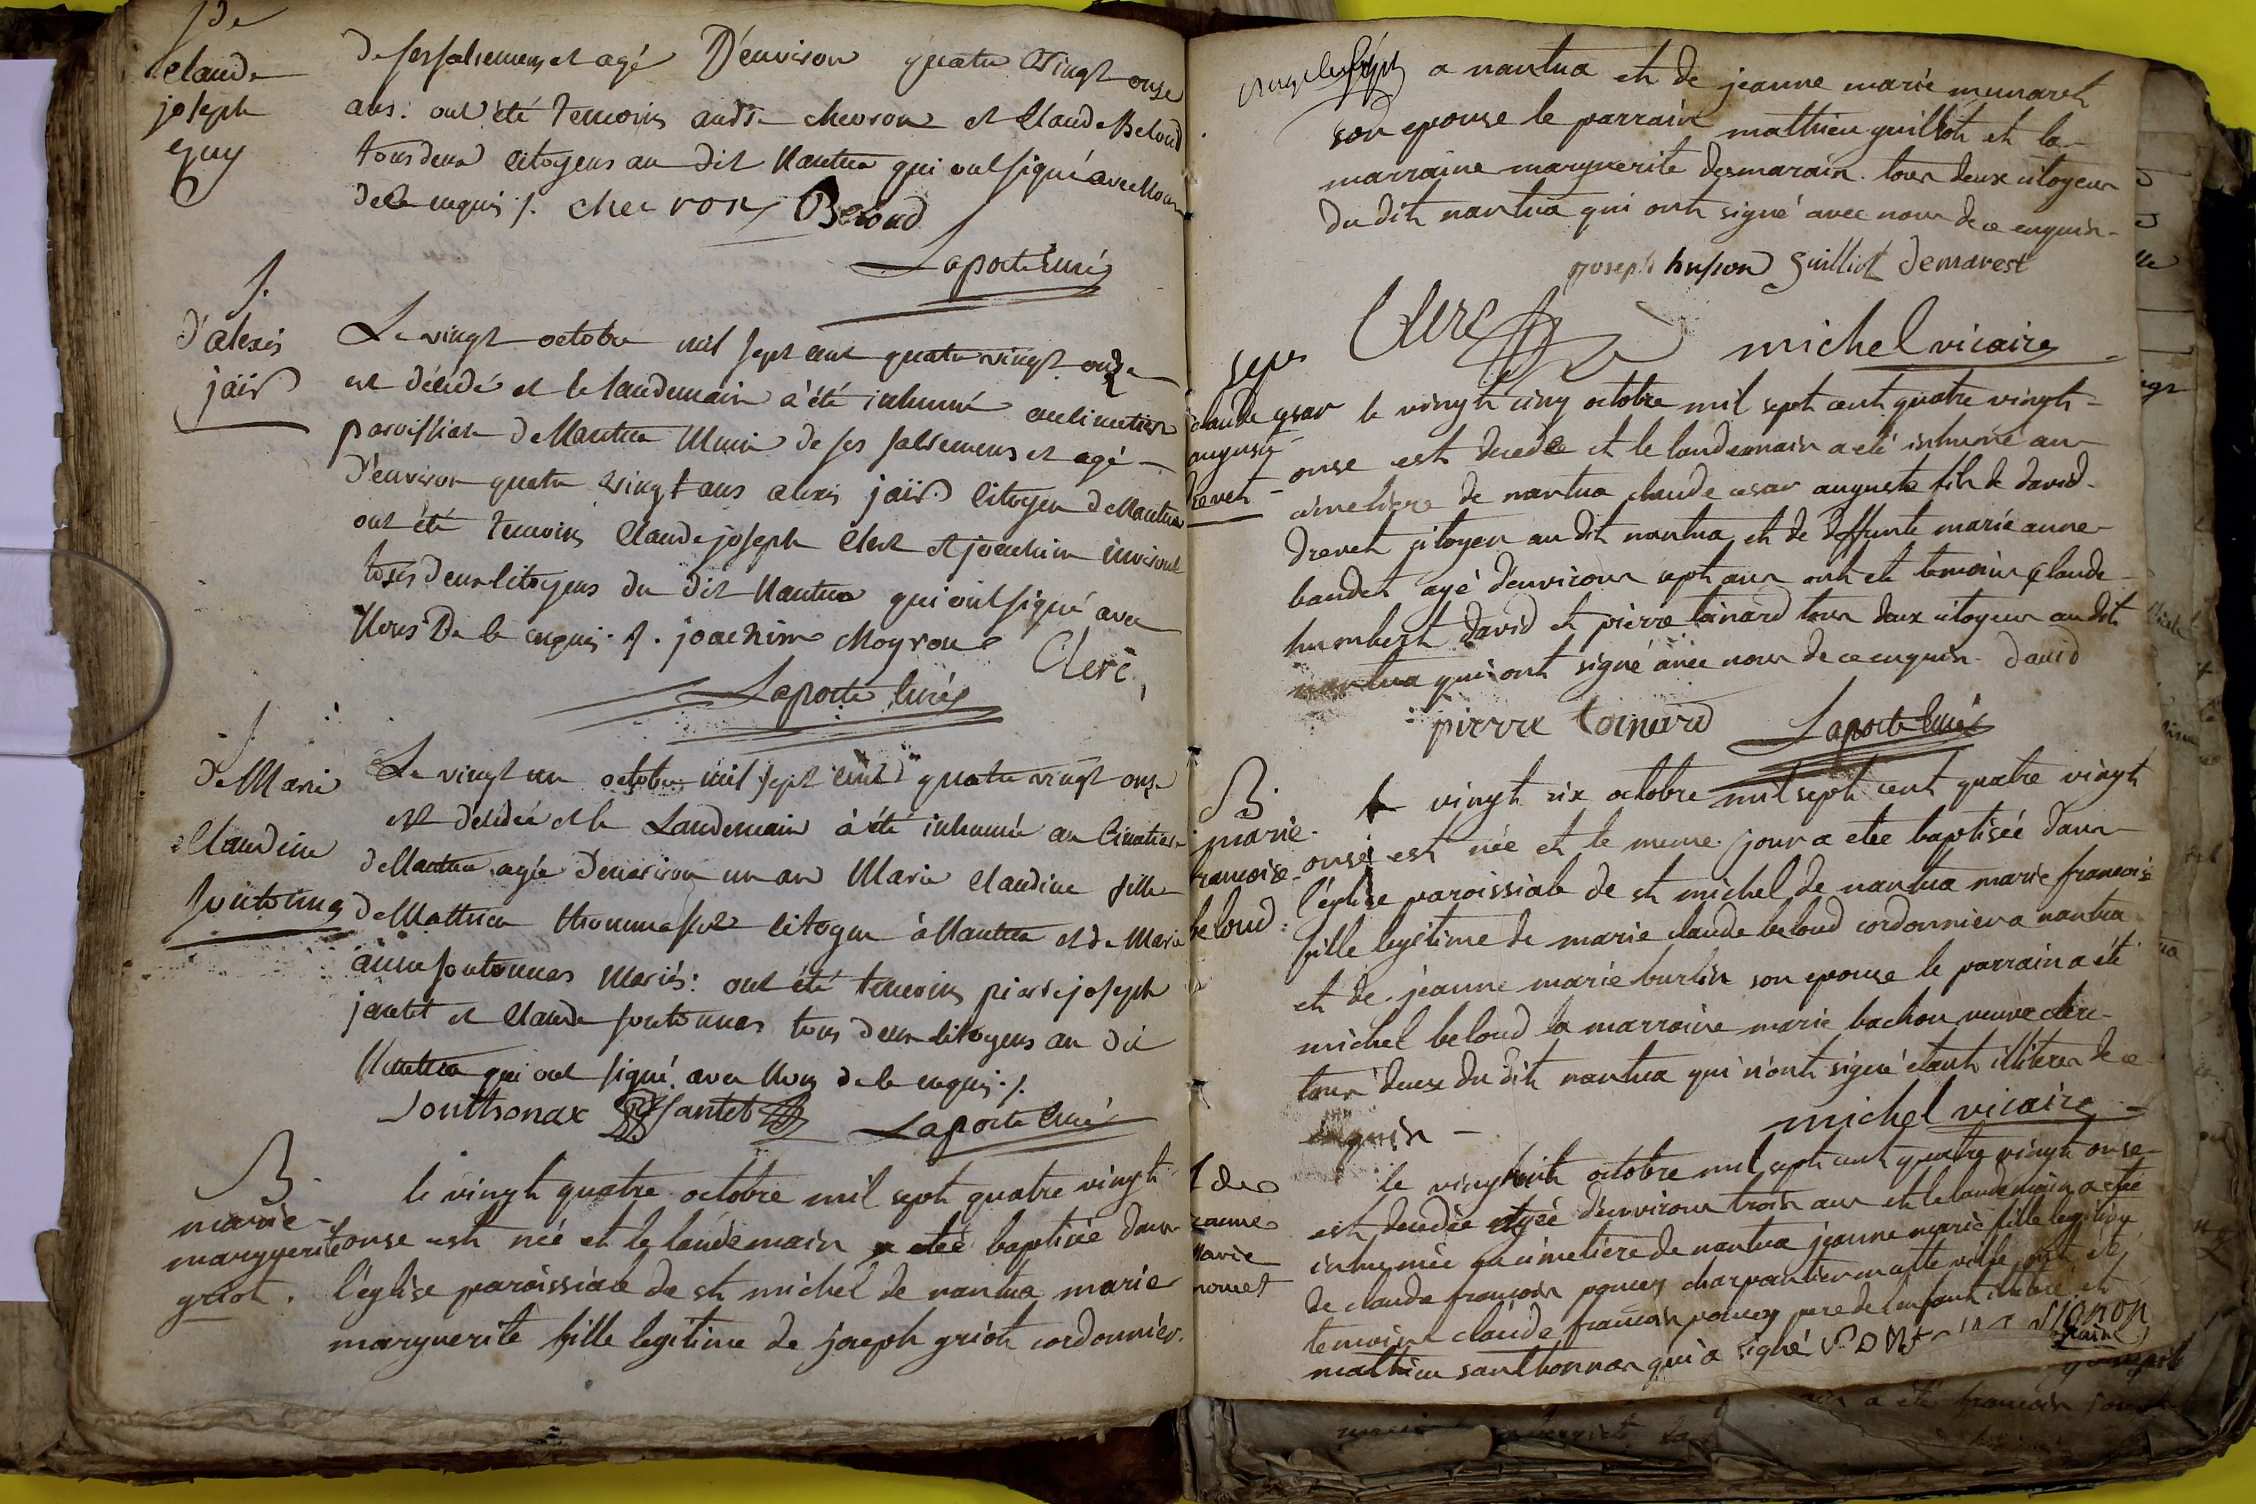 de
claude
joseph
guy
de ses sacremens et agé D'environ quatre Vingt onze
ans: ont été temoins andré chevron et Claude Beloud
tous deux citoyens au dit Nantua qui ont signé avec Nous
de ce enquis /. chevron Beloud
Laporte curé
d'alexis
jaïr
Le vingt octobre mil sept cent quatre vingt onze
est décédé et le landemain à été inhumé au cimetiere
paroissiale de Nantua Muni de ses sacremens et agé
D'environ quatre vingt ans alexis jaïr citoyen de Nantua
ont été temoins Claude joseph Clerc et joachim
tous deux citoyens du dit Nantua qui ont signé avec
Nous De ce enquis ./. joachim Moyrone Clerc
Laporte curé
de Marie
Claudine
Le vingt un octobre mil sept cent quatre vingt onze
est décédée et le Landemain à été inhumée au Cimetiere
de Nantua agée d'environ un an Marie Claudine fille
de Mathieu citoyen à Nantua et de Marie
anne Sontonnas Mariés: ont été temoins pierre joseph
jantet et Claude Sontonnas tous deux citoyens au dit
Nantua qui ont signé avec Nous de ce enquis ./.
Sonthonax Jantet Laporte Curé
B.
marie
marguerite
griot.
le vingt quatre octobre mil sept quatre vingt
onse est née et le landemain a eté baptisée dans
l'église paroissiale de st michel de nantua marie
marguerite fille legitime de joseph griot cordonnier.
a nantua et de jeanne marie munaret
son epouse le parrain mathieu guilliot et la
marraine marguerite desmarais. tous deux citoyens
du dit nantua qui ont signé avec nous de ce enquis.
joseph husson Guilliot Demarest
Clerc michel vicaire
sepe
claude cesar
auguste
drevet
le vingt cinq octobre mil sept cent quatre vingt
onse est decedé et le landemain a eté inhumé au
cimetiere de nantua claude cesar auguste fils de david
drevet citoyen au dit nantua et de deffunte marie anne
baudet agé d'environ sept ans ont eté temoins claude
humbert david et pierre toinard tous deux citoyens au dit
nantua qui ont signé avec nous de ce enquis. David
pierre toinard Laporte Curé
B.
marie
francoise
beloud:
le vingt six octobre mil sept cent quatre vingt
onse est née et le meme jour a eteé baptisée dans
l'église paroissiale de st michel de nantua marie francoise
fille legitime de marie claude beloud cordonnier a nantua
et de jeanne marie burlin son epouse le parrain a été
michel beloud la marraine marie bachou veuve clerc
tous deux du dit nantua qui n'ont signé étant illiteres de ce
enquis
michel vicaire
de
janne
marie
poncet
le vingt huit octobre mil sept cent quatre vingt onse
est decedée agée d'environ trois ans et le landemain a eté
inhumée au cimetiere de nantua jeanne marie fille legitime
de claude francois poncey charpantier en cette ville ont été
temoins claude francois poncey pere de l'enfant illitere et
mathieu santhonnas qui a signé